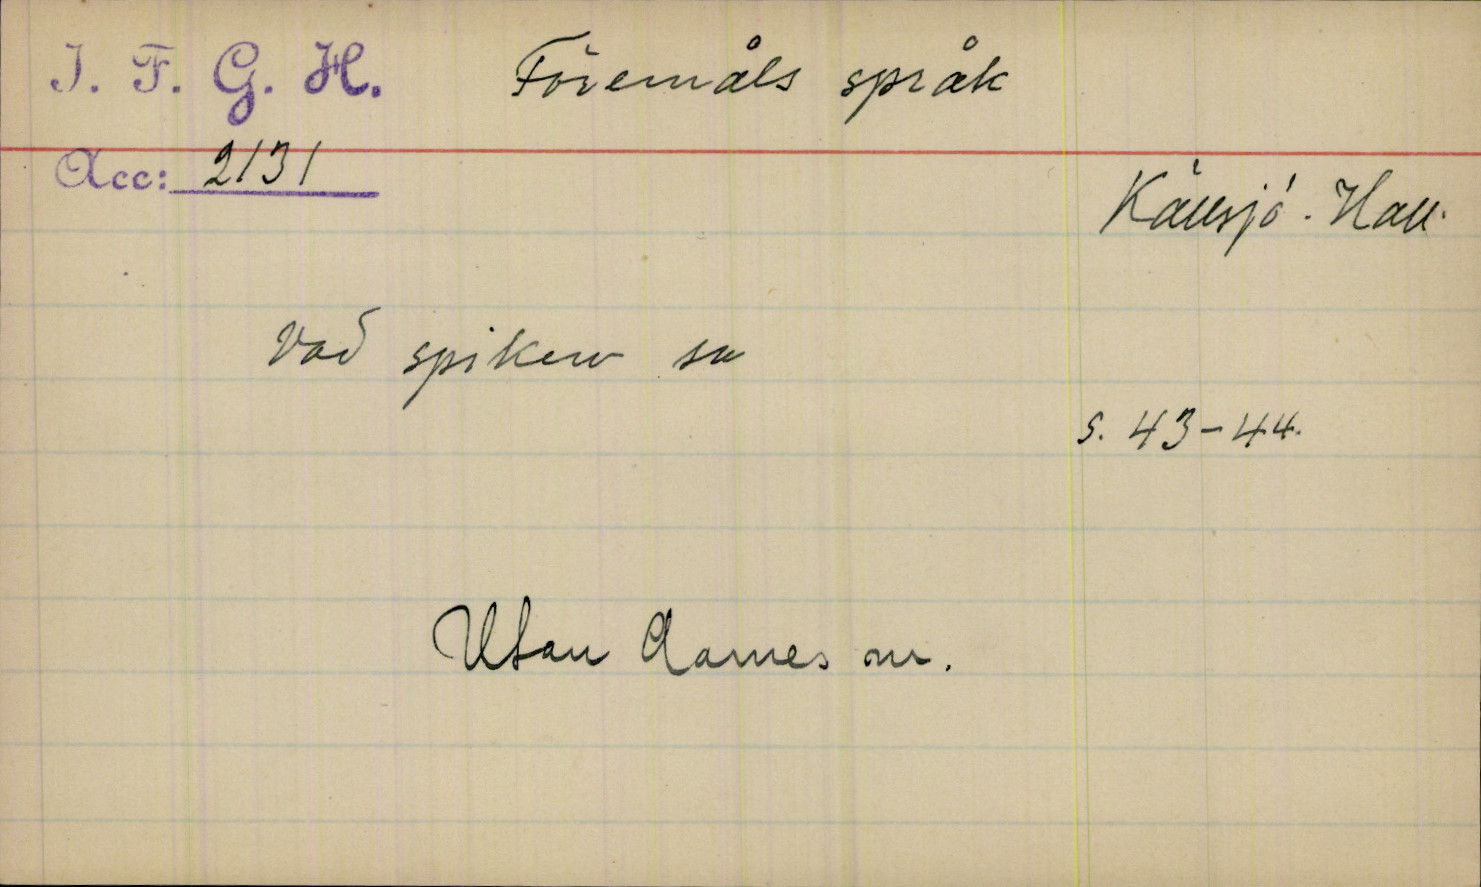 I. F. G. H. Föremåls språk
Acc: 2131
Källsjö. Hall.
Vad spiken sa
s. 43-44.
Utan Aarnes nr.